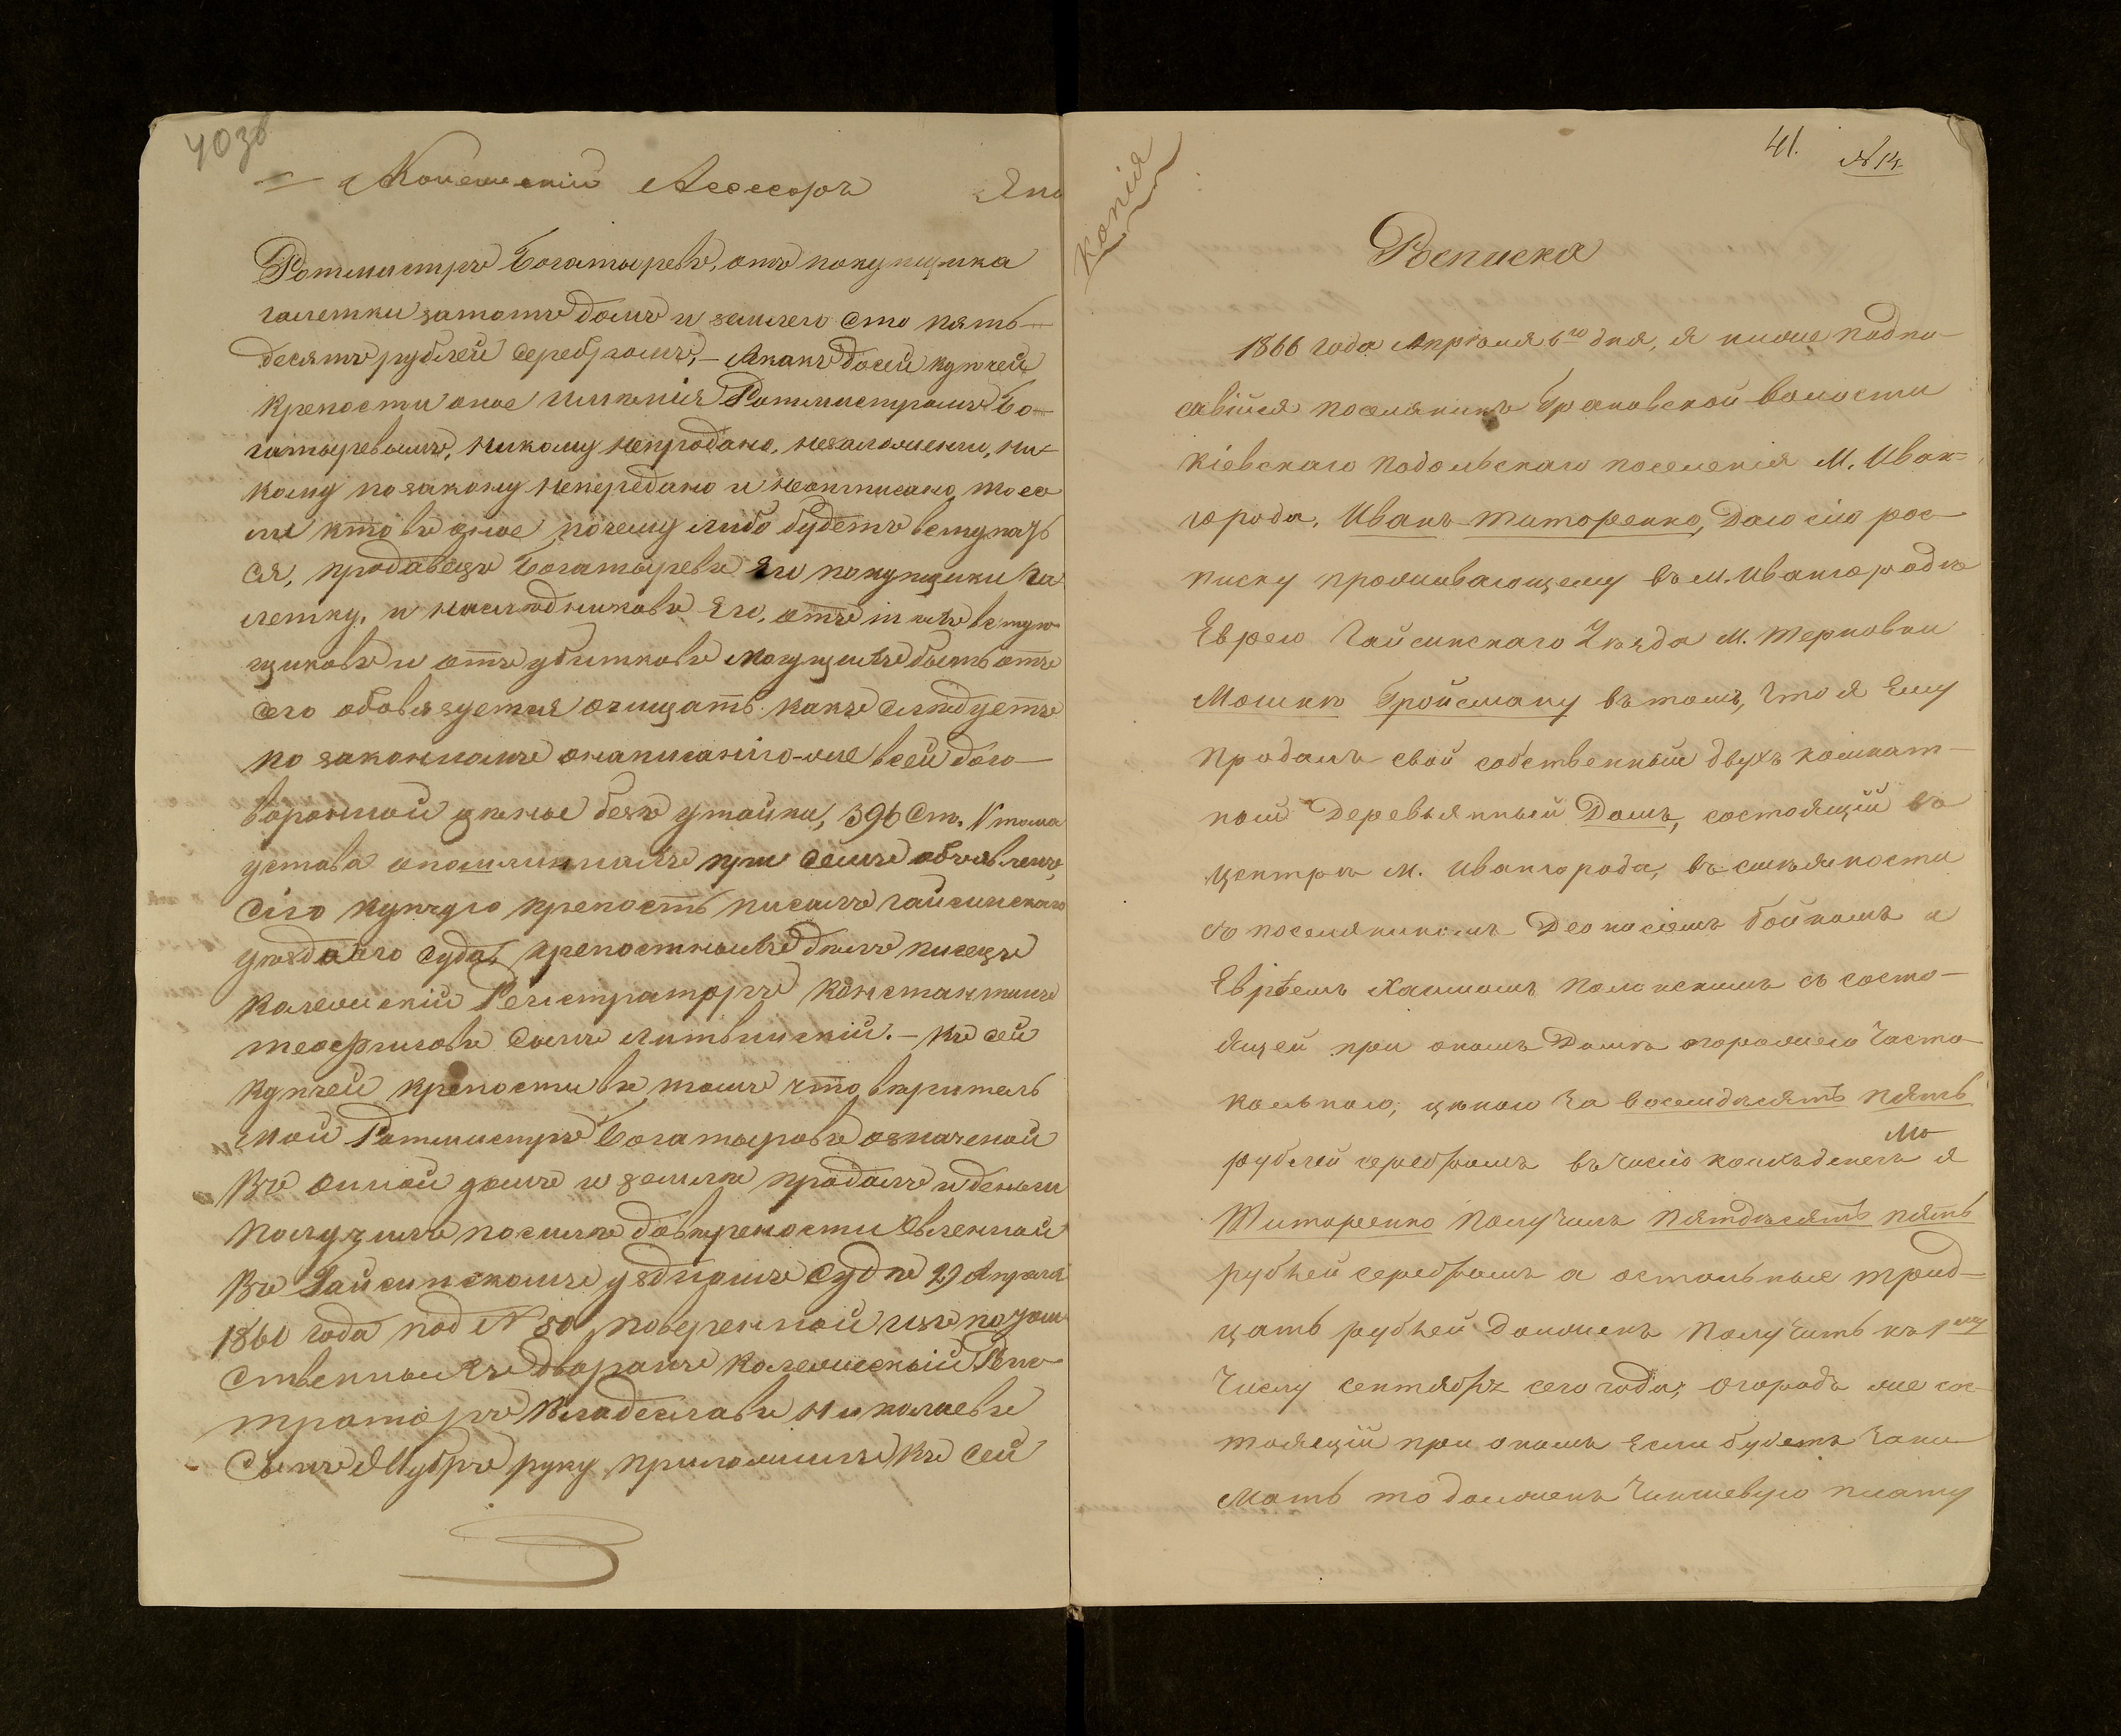 40 зв
Колежский Ассесоръ Яко
Ротмистръ Богатыревъ, отъ покупщика
галетки затотъ домъ и землею сто пять
десятъ рублей серебромъ, – Акакъ досей купчей
крепости оное имѣнія Ротмистромъ Бо-
гатыревымъ, никому непродано, незаложенно, ни-
кому позакону непередано и неотписано тоес
ли ктовъ оное почему либо будетъ вступатъ
ся, продавецъ Богатыревъ Его покупщика га
летку, и наслѣдниковъ Его, отъ тѣхъ вступ
щиковъ и отъ убитковъ могущихъ быть отъ
сего обовязуется очищать какъ слѣдуетъ
по законамъ онаписаніи-же всей дого
воронной цѣные безъ утайки, 396 ст. V тома
устава опошлинахъ при семъ объявленъ,
Сіго купчую крепость писалъ гайсинскаго
уѣзднаго суда, крепостныхъ дѣлъ писецъ
Колежский Регистраторъ Константинъ
теофиловъ сынъ Литвинский. – Къ сей
купчей крепостивъ томъ что вѣритель
мой Ротмистръ Богатыровъ означеной
Въ онной домъ и землю продалъ иденьги
получилъ посилѣ довѣрености явленной
Въ Гайсинскомъ уѣздномъ Судѣ 29 Апреля
1861 года под № 80 поверенной изъ потом
ственныхъ дворянъ Колежский Реги
траторъ Владеславъ Николаевъ
Сынъ руку приложилъ Къ сей
Копія
41.
№ 14
Росписка
1866 года Апрѣля 6го дня, я ниже подпи-
савійся поселянинъ Грановской волости
Кіевскаго Подольскаго поселенія М. Иван=
города, Иванъ Титоренко, Даю сію рос-
писку проживающему въ м. Ивангородѣ
Еврею Гайсинскаго Уѣзда м. Терновки
Мошкѣ Гройсману въ томъ, что я Ему
продалъ свой собственный двухъ комнат-
ной Деревьянный Домъ, состоящій въ
центрѣ м. Ивангорода, въ смѣжности
съ поселяниномъ Деонасіемъ Бойкомъ а
Еврѣемъ Хаимомъ Полонскимъ съ состо-
ящей при ономъ Домѣ огорожею часто
кольною, цѣною за восемдесятъ пять
рублей серебромъ въ число коихъ денегъ я
Титоренко получилъ пятдесятъ пять
рублей серебромъ а остальные трид=
цать рублей долженъ получить къ 1му
числу сентября сего года; огородъ же сос-
тоящій при ономъ если будетъ зани
мать то долженъ чиншевую плату